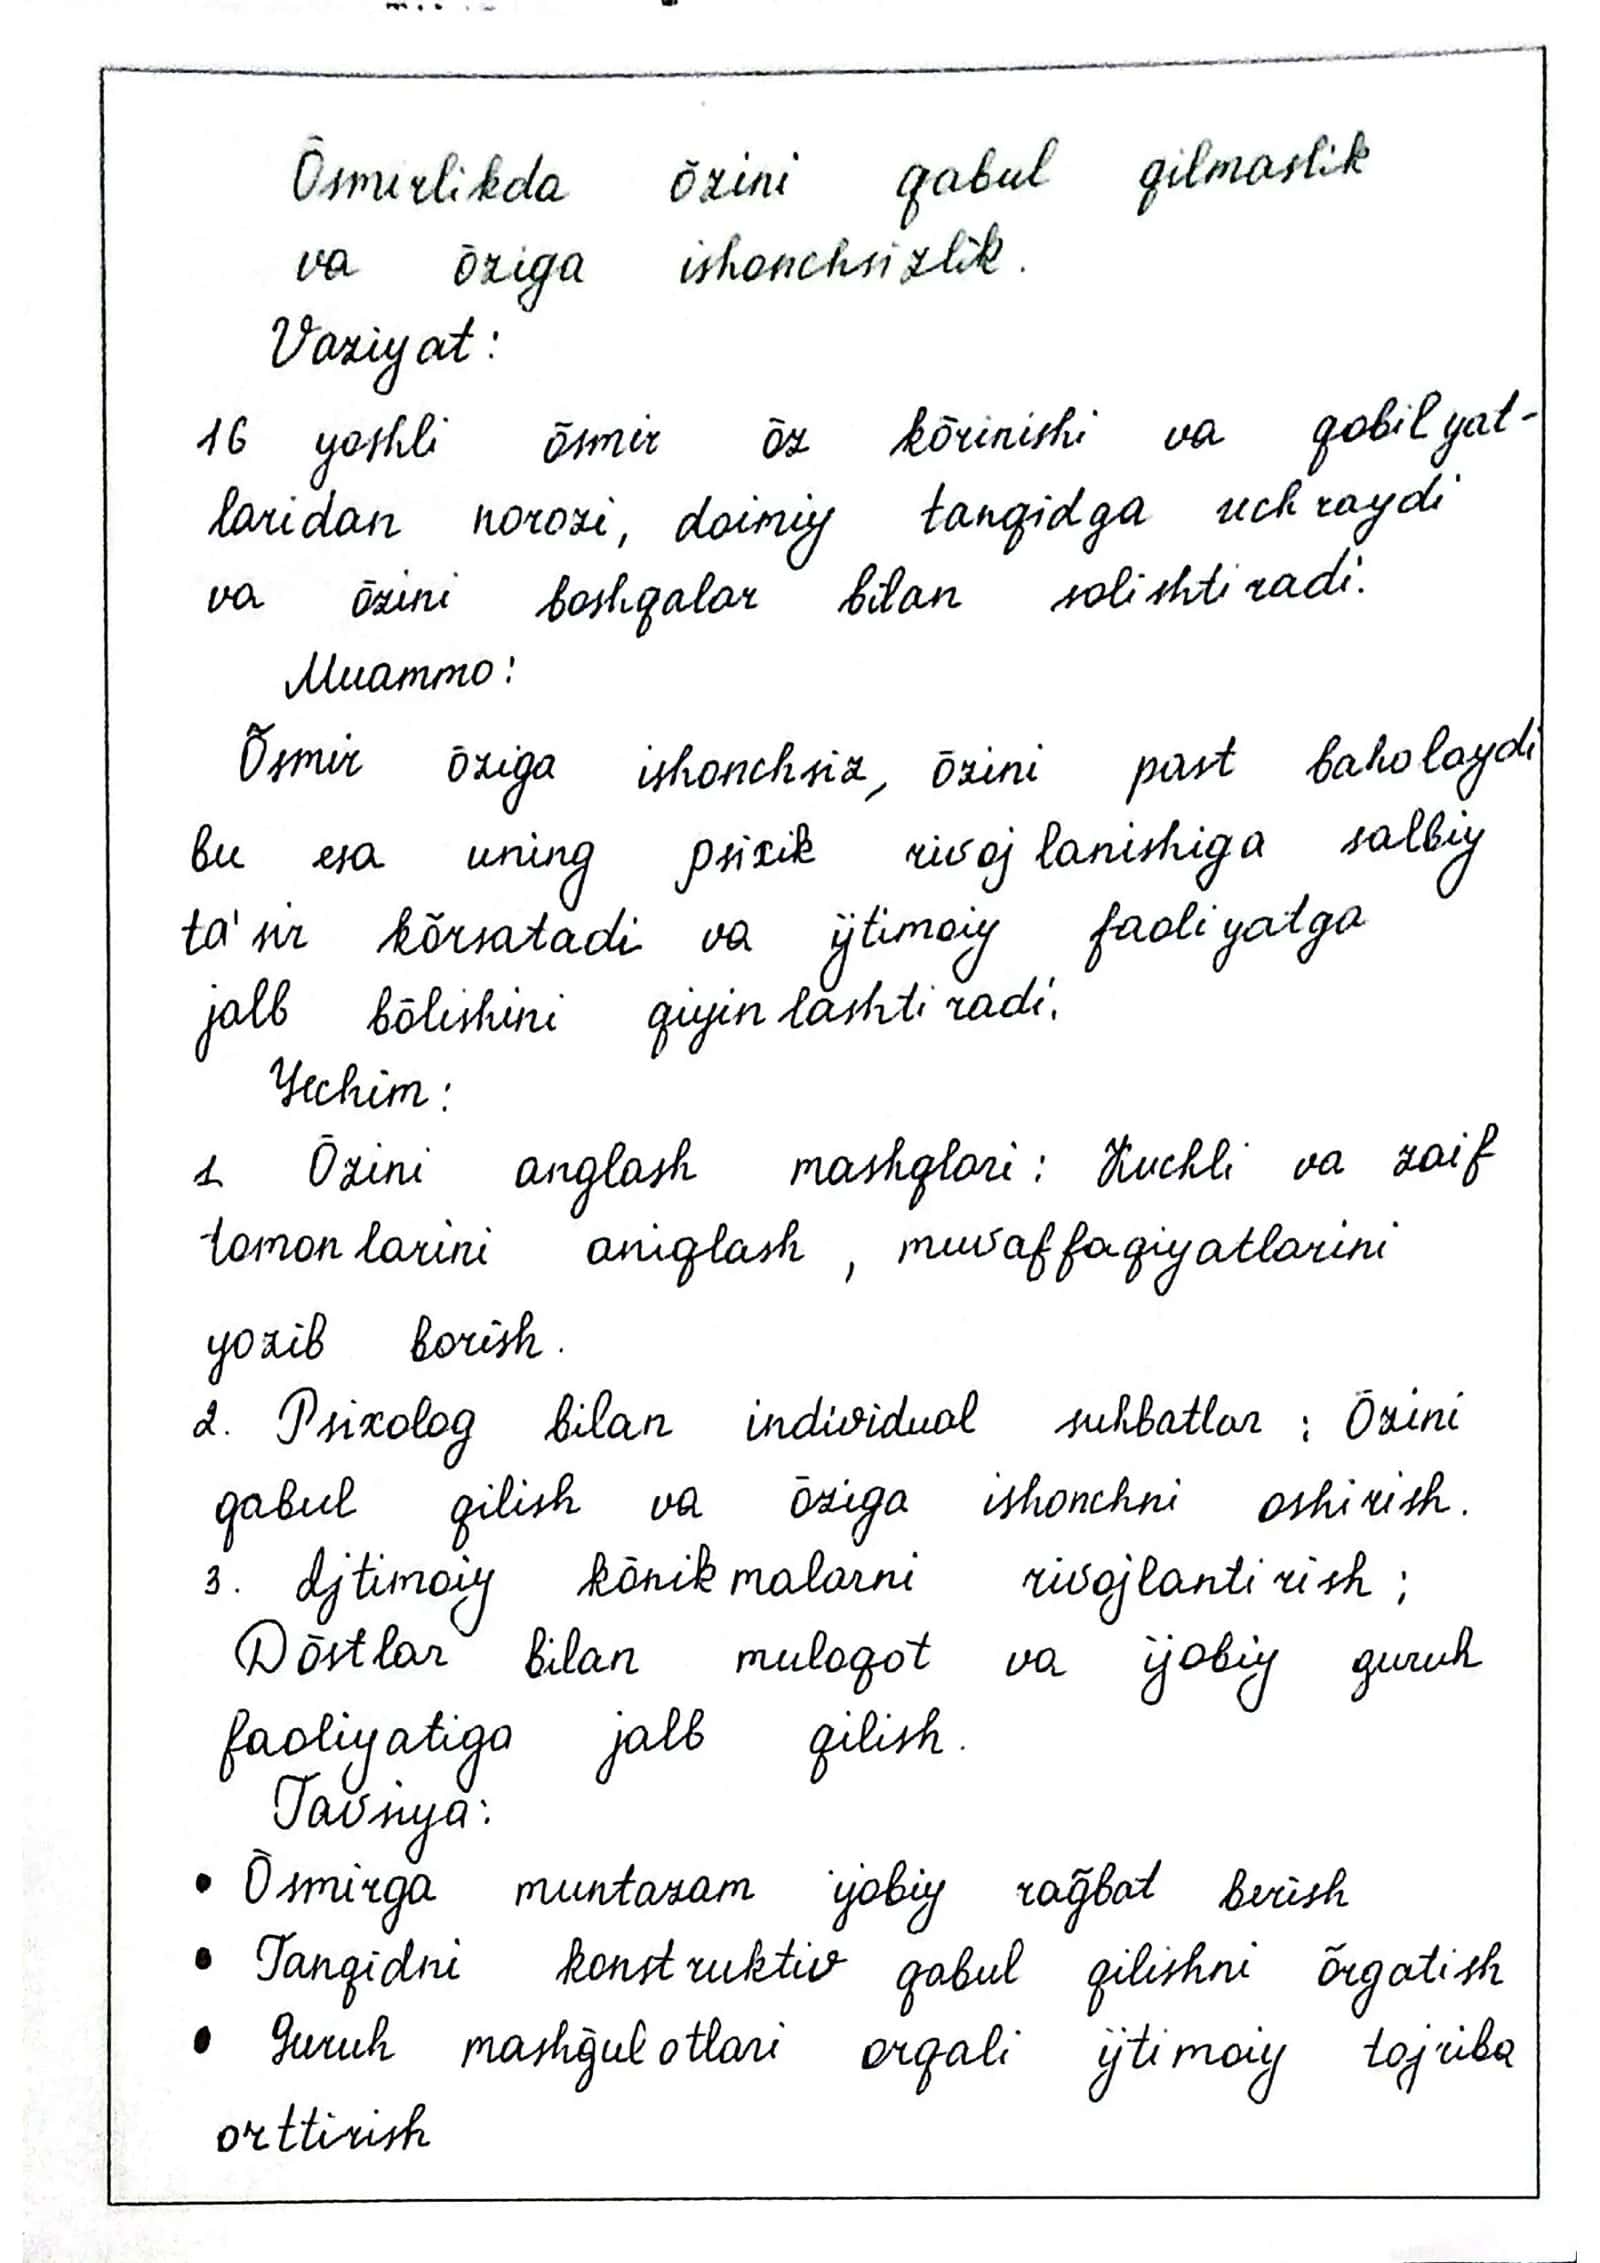 Õsmirlikda õzini qabul qilmaslik
va õziga ishonchsizlik.
Vaziyat:
16 yoshli õsmir õz kõrinishi va qobilyat-
laridan norozi, doimiy tanqidga uchraydi
va õzini boshqalar bilan solishtiradi.
Muammo:
Õsmir õziga ishonchsiz, õzini past baholaydi
bu esa uning psixik rivojlanishiga salbiy
ta'sir kõrsatadi va ijtimoiy faoliyatga
jalb bõlishini qiyinlashtiradi.
Yechim:
1 Õzini anglash mashqlari: Kuchli va zaif
tomonlarini aniqlash, muvaffaqiyatlarini
yozib borish.
2. Psixolog bilan individual suhbatlar: Õzini
qabul qilish va õziga ishonchni oshirish.
3. Ijtimoiy kõnikmalarni rivojlantirish;
Dõstlar bilan muloqot va ijobiy guruh
faoliyatiga jalb qilish.
Tavsiya:
• Õsmirga muntazam ijobiy rag̃bat berish
• Tanqidni konstruktiv qabul qilishni õrgatish
• Guruh mashg̃ulotlari orqali ijtimoiy tajriba
orttirish